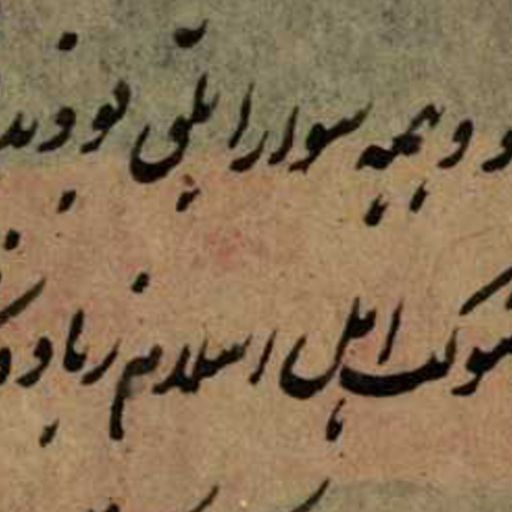 و همه سوار ابلق بودند
شوکت اهل اسلام زیاده